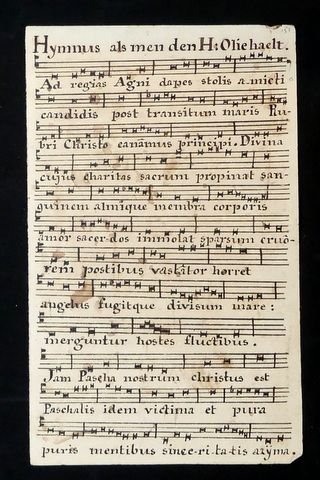 Hymnus als men den H: Olie haelt.
Ad regias Agni dapes stolis amicti
candidis post transitum maris Ru-
bri Christo canamus principi. Divina
cujus charitas sacrum propinat san-
guinem almique membra corporis
amor sacerdos immolat sparsum cruo-
rem postibus vastator horret
angelus fugitque divisum mare:
merguntur hostes fluctibus.
Jam Pascha nostrum christus est
Paschalis idem victima et pura
puris mentibus since-ri-ta-tis azÿma.